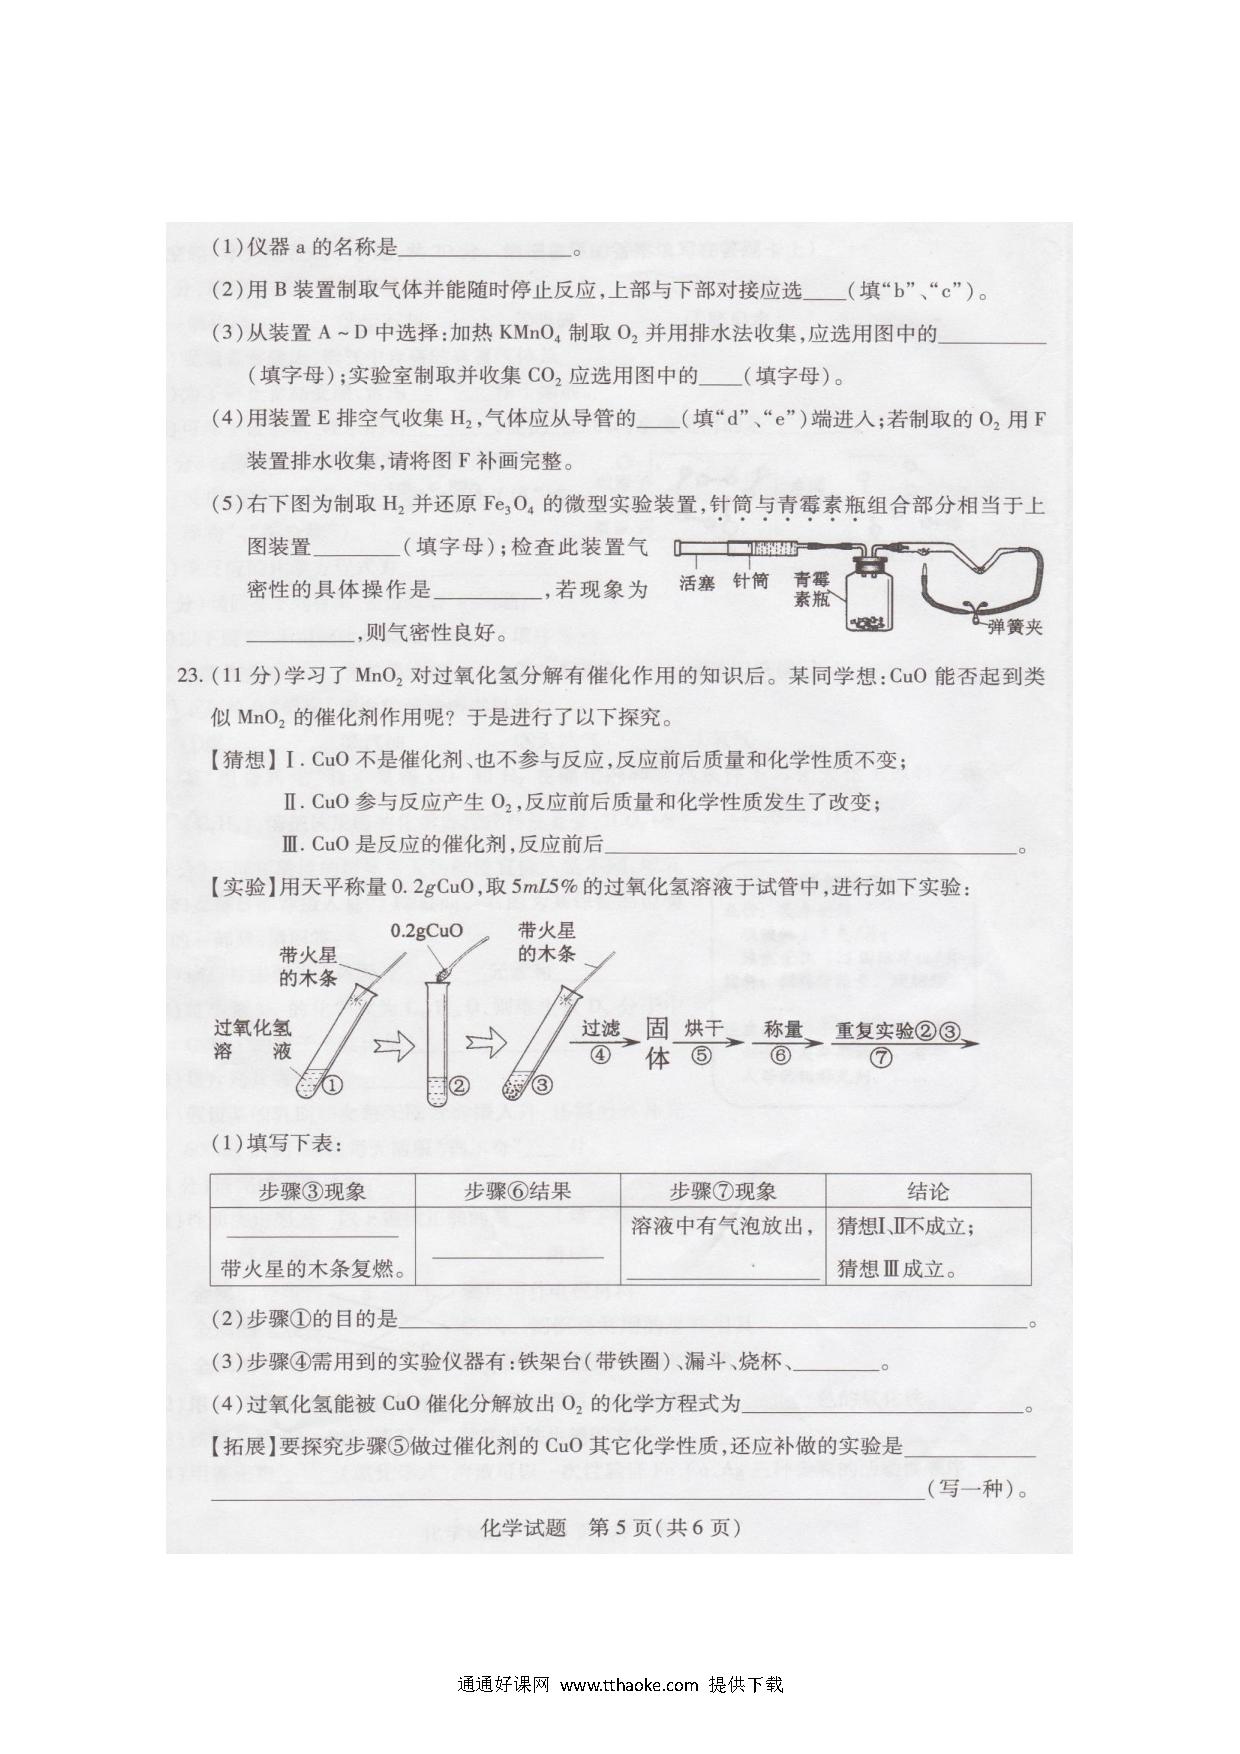 (1)仪器 a 的名称是____________。
(2)用 B 装置制取气体并能随时停止反应,上部与下部对接应选____(填“b”、“c”)。
(3)从装置 A ~ D 中选择:加热 KMnO₄ 制取 O₂ 并用排水法收集,应选用图中的________
(填字母);实验室制取并收集 CO₂ 应选用图中的____(填字母)。
(4)用装置 E 排空气收集 H₂,气体应从导管的____(填“d”、“e”)端进入;若制取的 O₂ 用 F
装置排水收集,请将图 F 补画完整。
(5)右下图为制取 H₂ 并还原 Fe₃O₄ 的微型实验装置,针筒与青霉素瓶组合部分相当于上
图装置______(填字母);检查此装置气
密性的具体操作是________,若现象为
________,则气密性良好。
活塞 针筒 青霉素瓶
弹簧夹
23. (11 分)学习了 MnO₂ 对过氧化氢分解有催化作用的知识后。某同学想:CuO 能否起到类
似 MnO₂ 的催化剂作用呢? 于是进行了以下探究。
【猜想】Ⅰ. CuO 不是催化剂、也不参与反应,反应前后质量和化学性质不变;
Ⅱ. CuO 参与反应产生 O₂,反应前后质量和化学性质发生了改变;
Ⅲ. CuO 是反应的催化剂,反应前后____________________________。
【实验】用天平称量 0. 2gCuO,取 5mL5% 的过氧化氢溶液于试管中,进行如下实验:
带火星的木条
0.2gCuO
带火星的木条
过氧化氢溶 液
① ② ③ 过滤④ 固体 烘干⑤ 称量⑥ 重复实验②③⑦
(1)填写下表:
步骤③现象 步骤⑥结果 步骤⑦现象 结论
____________ 溶液中有气泡放出, 猜想Ⅰ、Ⅱ不成立;
带火星的木条复燃。 ____________ ____________ 猜想Ⅲ成立。
(2)步骤①的目的是____________________________________________。
(3)步骤④需用到的实验仪器有:铁架台(带铁圈)、漏斗、烧杯、______。
(4)过氧化氢能被 CuO 催化分解放出 O₂ 的化学方程式为____________________。
【拓展】要探究步骤⑤做过催化剂的 CuO 其它化学性质,还应补做的实验是_________
__________________________________________________(写一种)。
化学试题 第 5 页(共 6 页)
通通好课网 www.tthaoke.com 提供下载